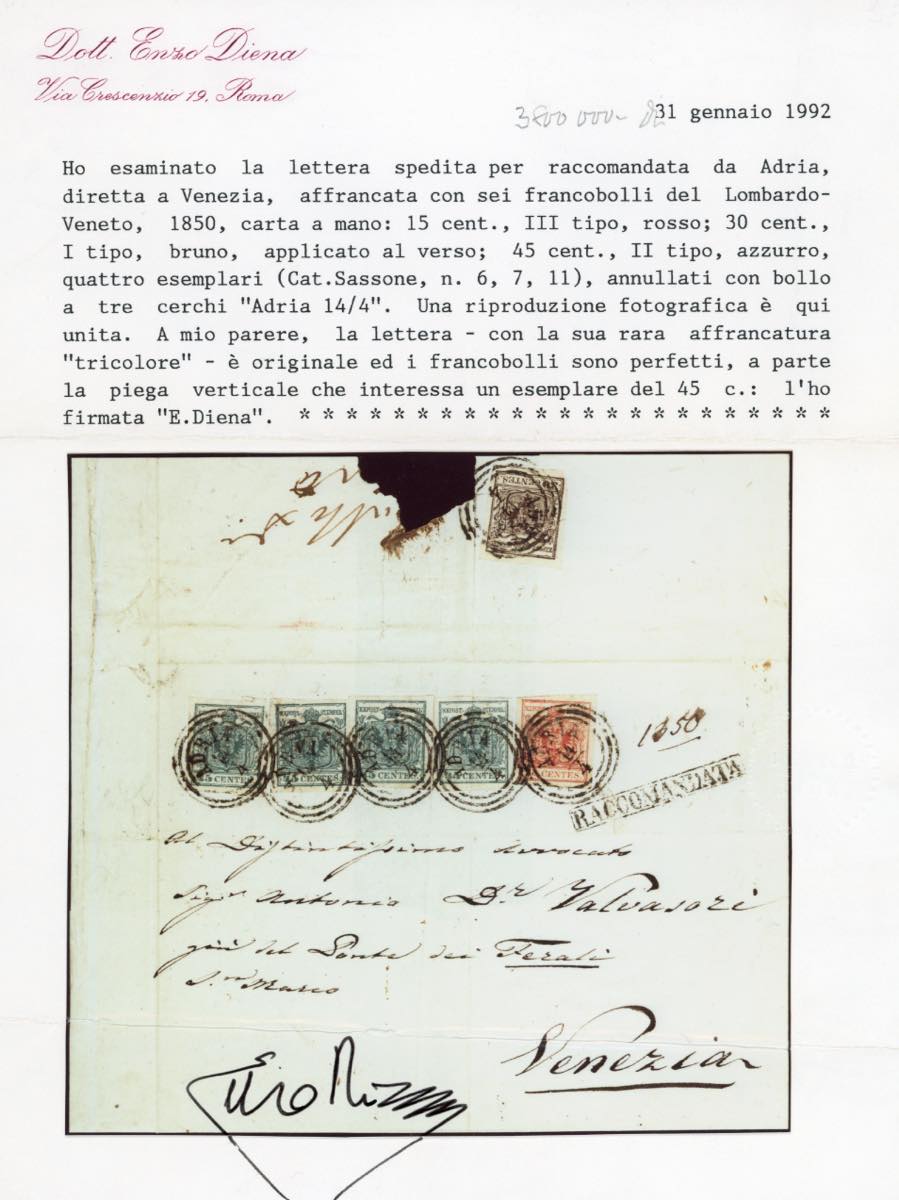 Dott. Enzo Diena
Via Crescenzio 19, Roma
3800 000-
31 gennaio 1992
Ho esaminato la lettera spedita per raccomandata da Adria,
diretta a Venezia, affrancata con sei francobolli del Lombardo-
Veneto, 1850, carta a mano: 15 cent., III tipo, rosso; 30 cent.,
I tipo, bruno, applicato al verso; 45 cent., II tipo, azzurro,
quattro esemplari (Cat.Sassone, n. 6, 7, 11), annullati con bollo
a tre cerchi "Adria 14/4". Una riproduzione fotografica è qui
unita. A mio parere, la lettera - con la sua rara affrancatura
"tricolore" - è originale ed i francobolli sono perfetti, a parte
la piega verticale che interessa un esemplare del 45 c.: l'ho
firmata "E.Diena". * * * * * * * * * * * * * * * * * * * * * * *
CENTES
ADRIA ADRIA ADRIA ADRIA ADRIA
45 CENTES 45 CENTES 45 CENTES 45 CENTES CENTES
1350
RACCOMANDATA
Al Distintissimo Avvocato
Sigr Antonio Dr Valvasori
giù del Ponte dei Ferali
S.n Marco
Venezia